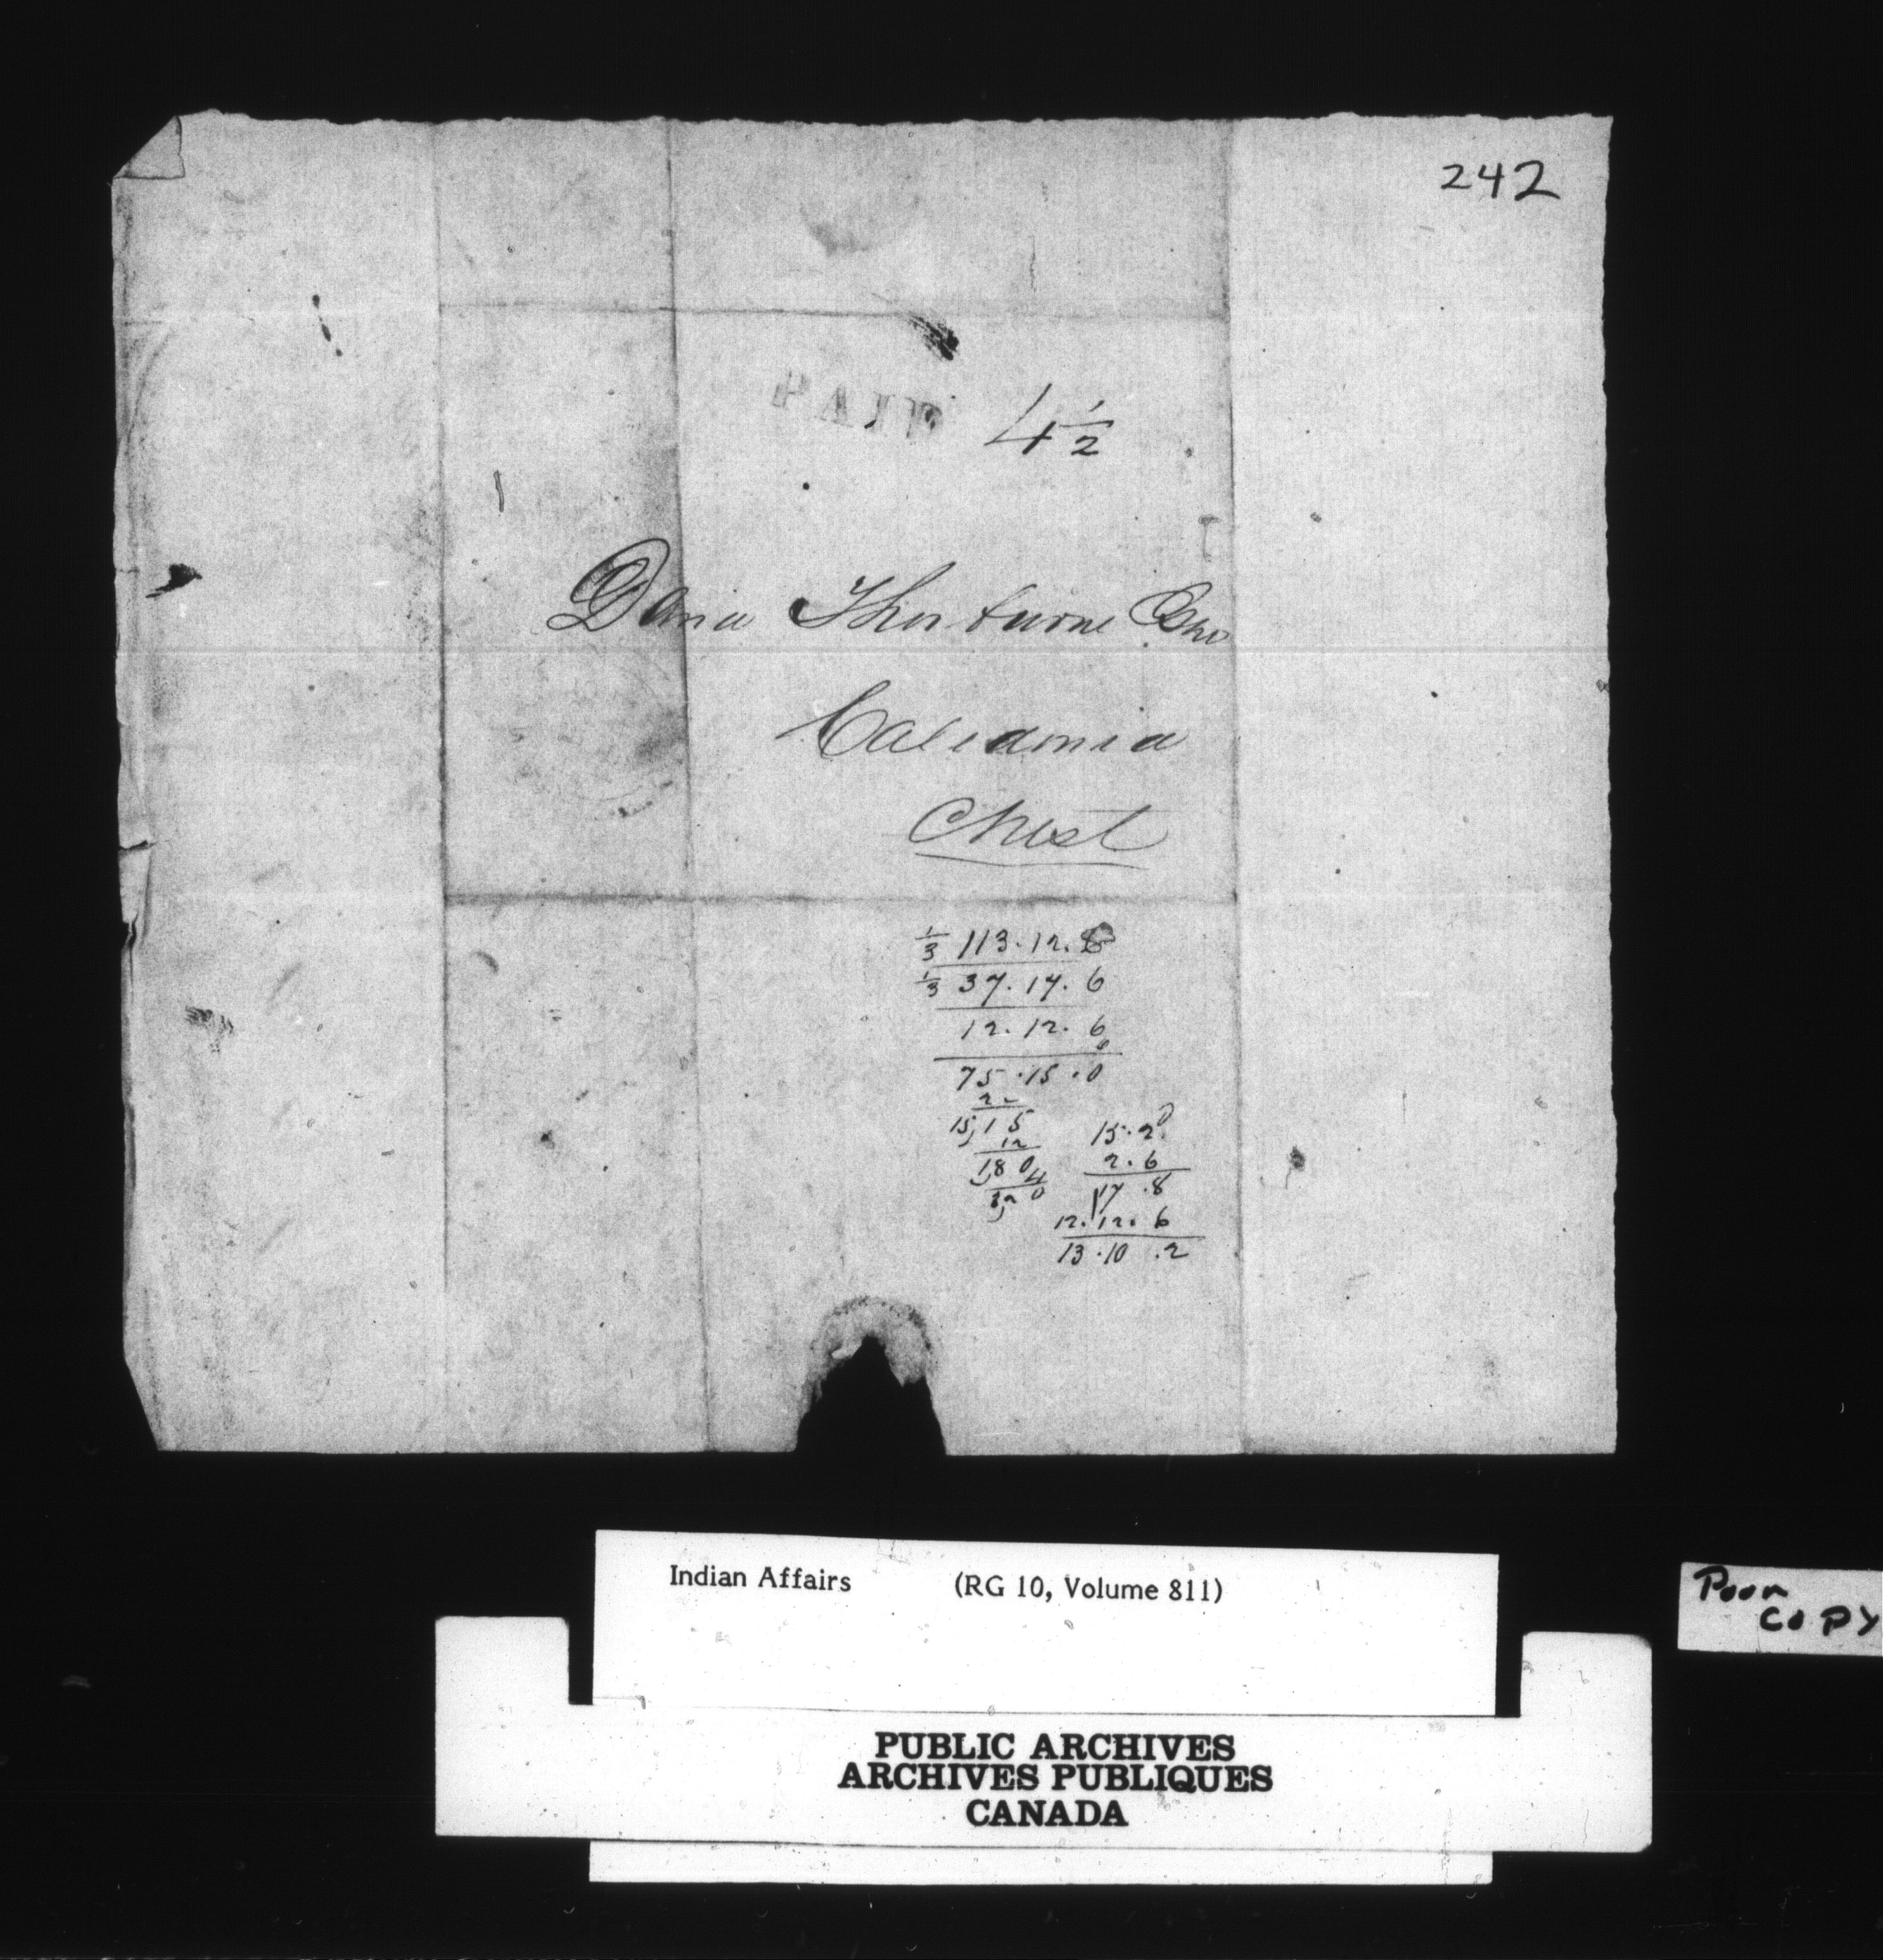 242
PAID 4 1/2
David Thorburne Esq
Caledonia
C West
1/3 113.12.6
1/3 37.17.6
12.12.6
6
75.15.0
15,15
12
180
4
15.2
2.6
17.8
12.12.6
13.10.2
Indian Affairs (RG 10, Volume 811)
Poor
COPY
PUBLIC ARCHIVES
ARCHIVES PUBLIQUES
CANADA